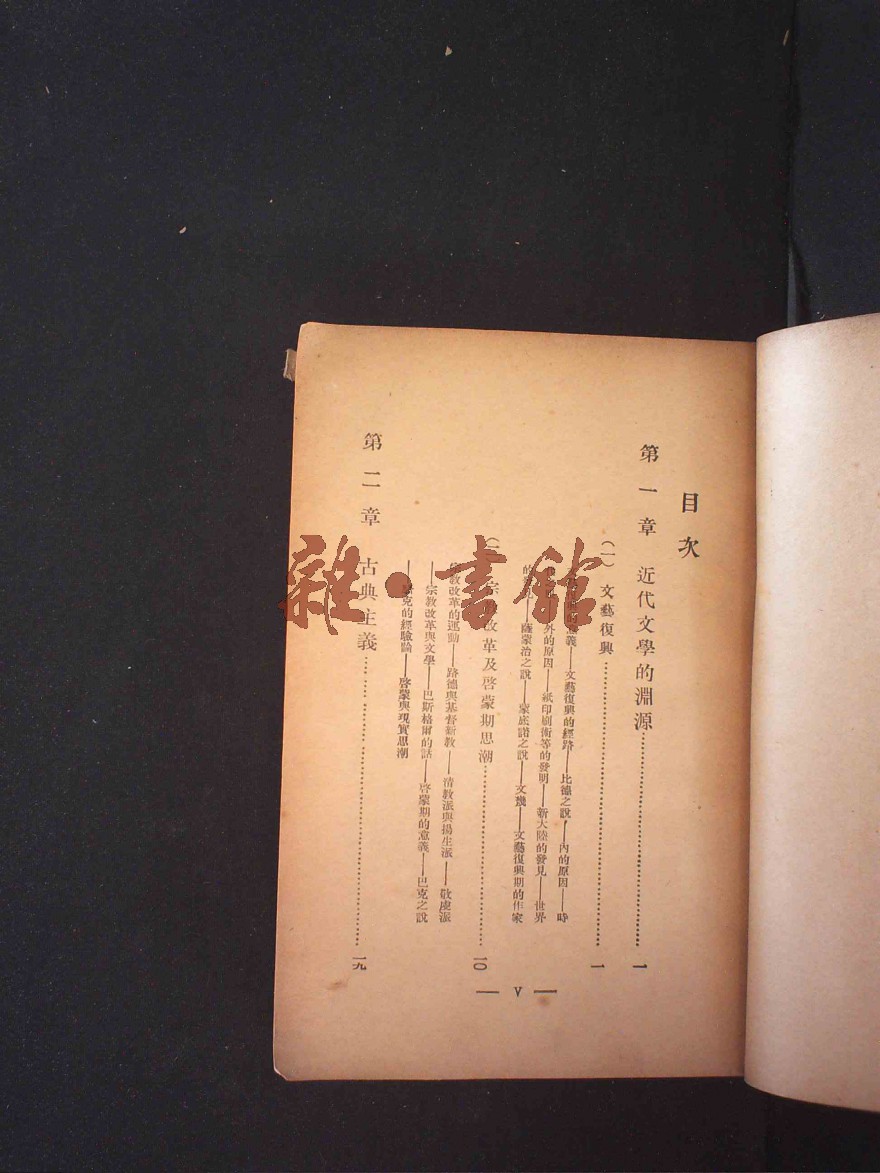 目次
第一章 近代文學的淵源 一
(一) 文藝復興 一
義——文藝復興的經路——比德之說——內的原因——時
外的原因——紙印刷術等的發明——新大陸的發見——世界
的——薩蒙治之說——蒙底諾之說——文璣——文藝復興期的作家
宗 改革及啓蒙期思潮 一〇
教改革的運動——路德與基督新教——清教派與揚生派——敬虔派
——宗教改革與文學——巴斯格爾的話——啓蒙期的意義——巴克之說
——克的經驗論——啓蒙與現實思潮
第二章 古典主義 一九
— v —
雜·書館